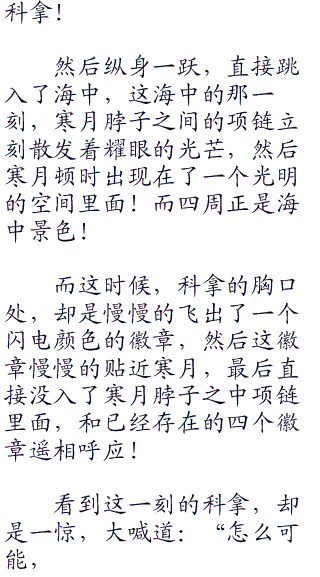 科拿！
然后纵身一跃，直接跳
入了海中，这海中的那一
刻，寒月脖子之间的项链立
刻散发着耀眼的光芒，然后
寒月顿时出现在了一个光明
的空间里面！而四周正是海
中景色！
而这时候，科拿的胸口
处，却是慢慢的飞出了一个
闪电颜色的徽章，然后这徽
章慢慢的贴近寒月，最后直
接没入了寒月脖子之中项链
里面，和已经存在的四个徽
章遥相呼应！
看到这一刻的科拿，却
是一惊，大喊道：“怎么可
能，